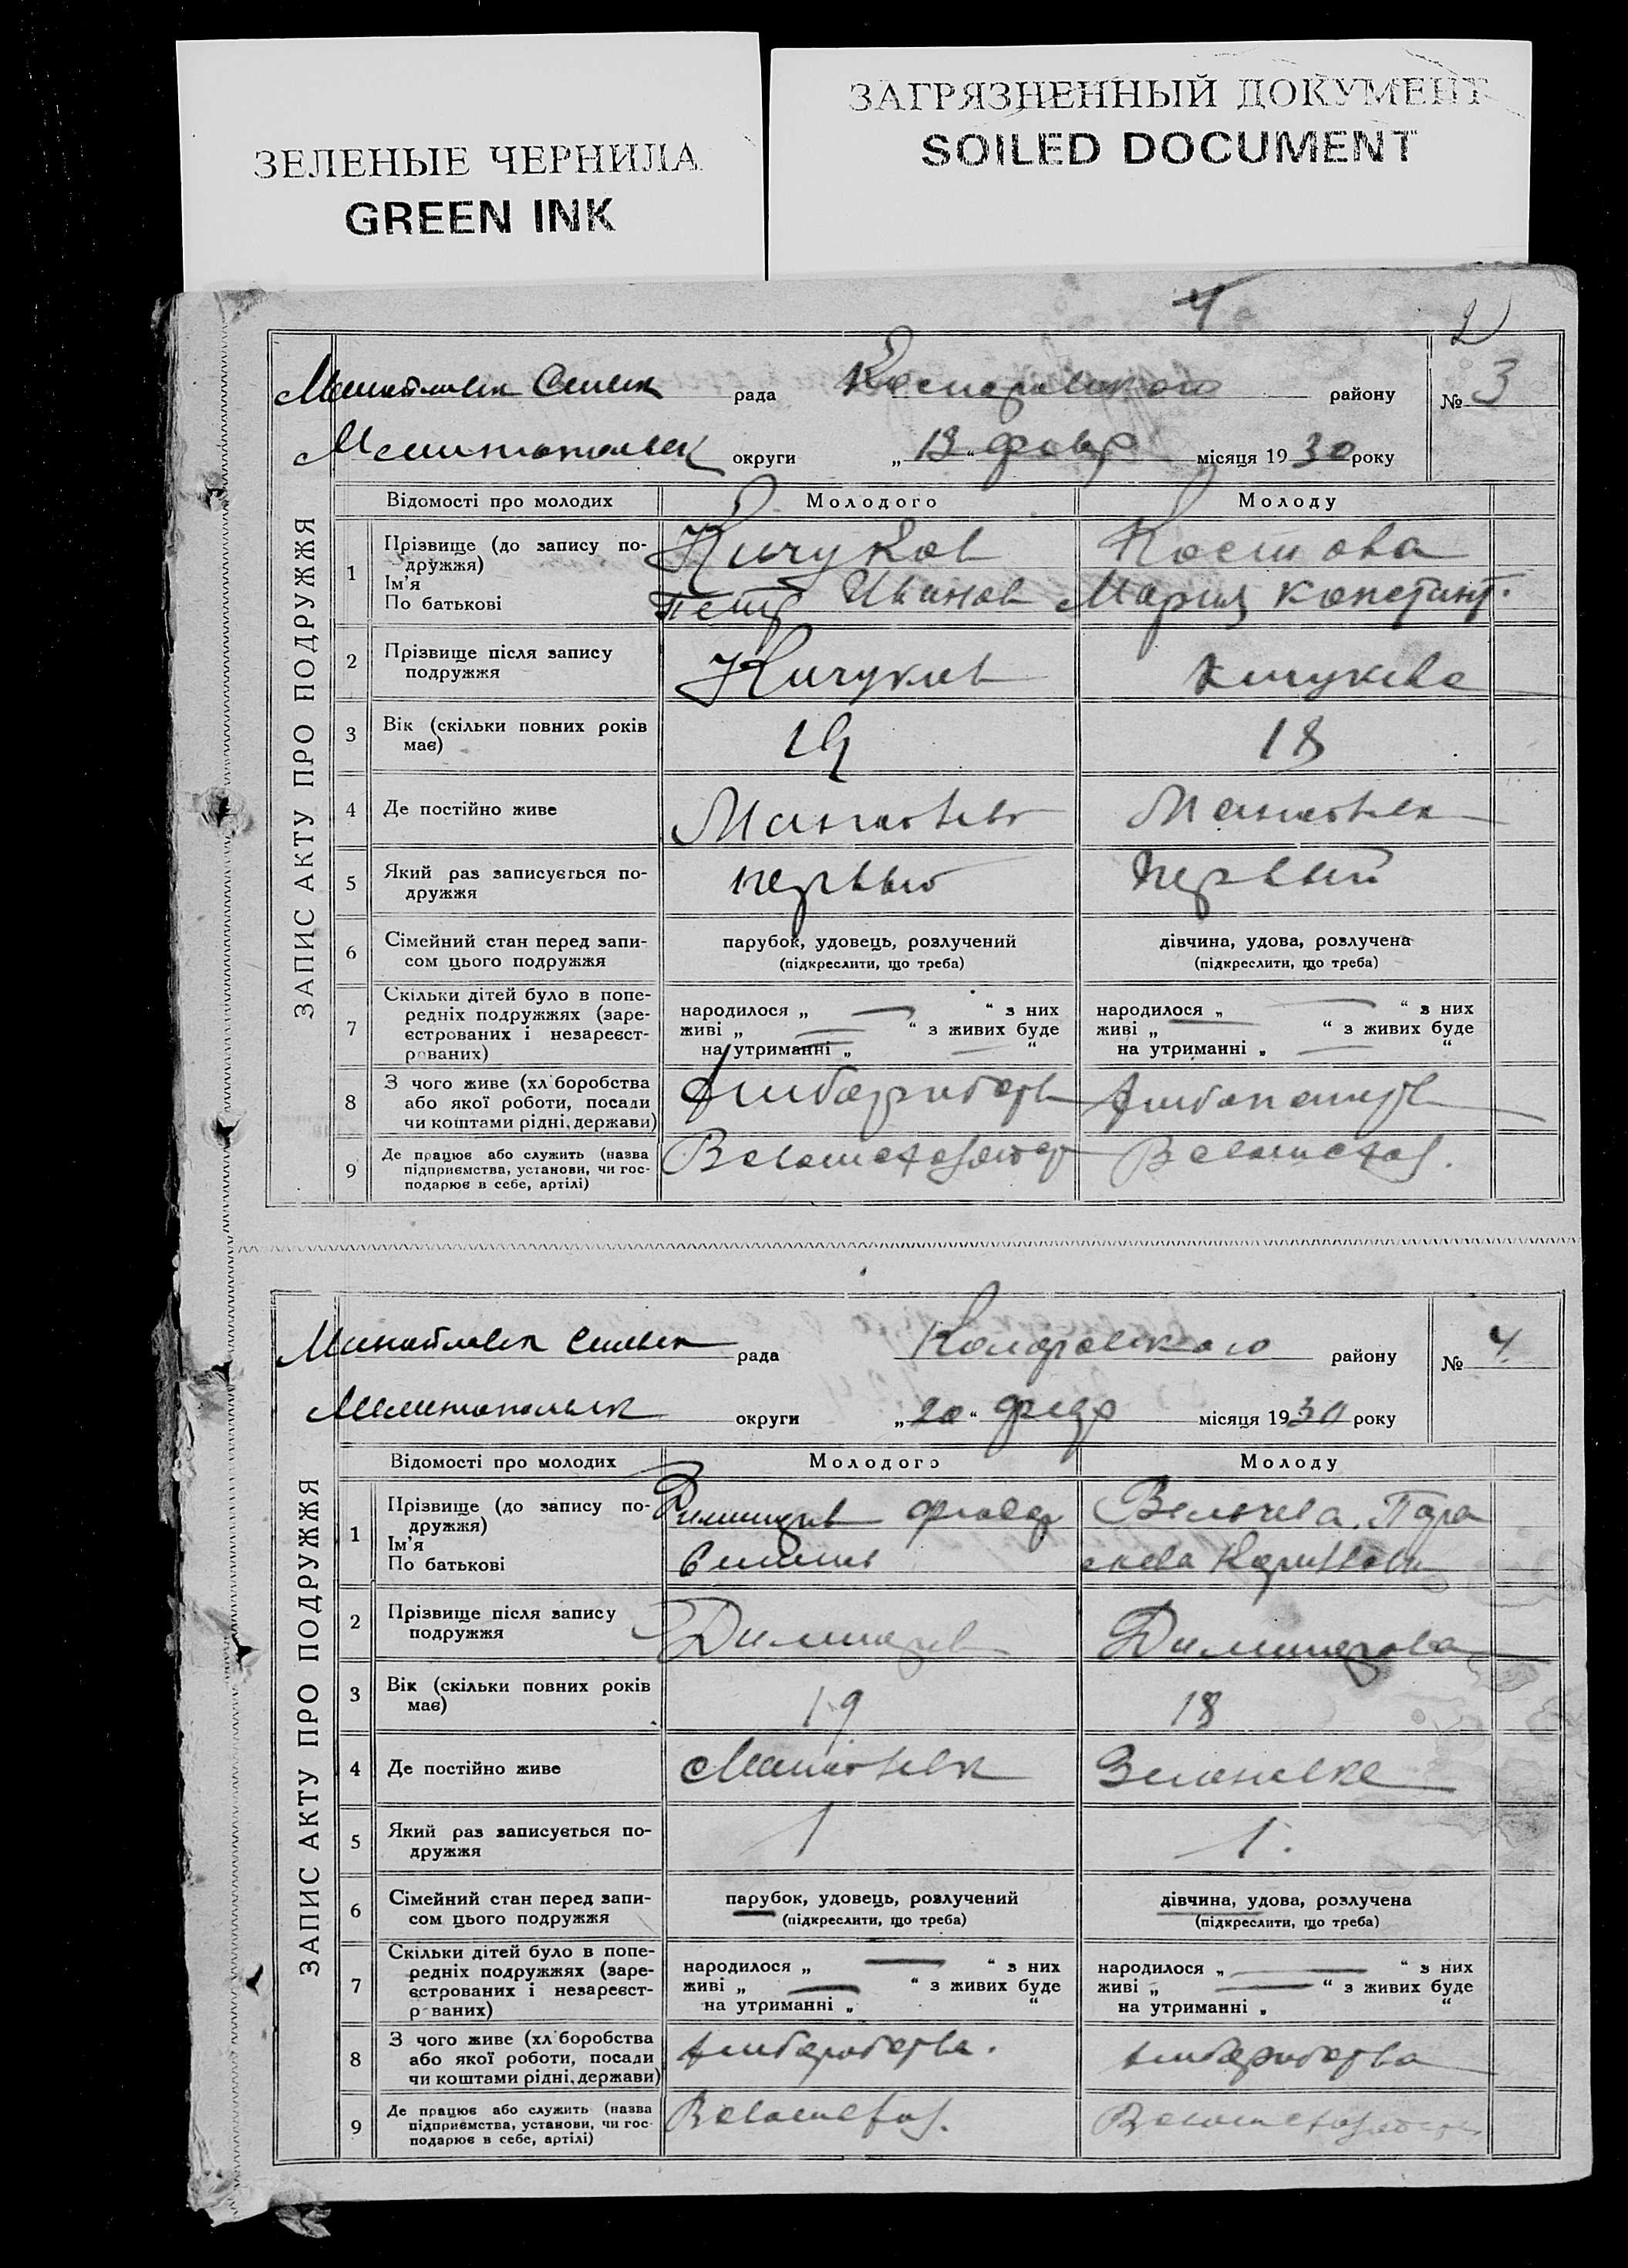 ЗЕЛЕНЫЕ ЧЕРНИЛА
GREEN INK
ЗАГРЯЗНЕННЫЙ ДОКУМЕНТ
SOILED DOCUMENT
4
2
рада района району № 3
округи „ 13 “ февр місяця 1930 року
ЗАПИС АКТУ ПРО ПОДРУЖЖЯ
Відомості про молодих Молодого Молоду
1 Прізвище (до запису по-
дружжя)
Ім'я
По батькові
Кичуков Костова
Петр Иванов Мария Констант.
2 Прізвище після запису
подружжя
Кичуков Кичукова
3 Вік (скільки повних років
має)
19 18
4 Де постійно живе
5 Який раз записується по-
дружжя
первый первый
6 Сімейний стан перед запи-
сом цього подружжя
парубок, удовець, розлучений дівчина, удова, розлучена
(підкреслити, що треба) (підкреслити, що треба)
7 Скільки дітей було в попе-
редніх подружжях (заре-
єстрованих і незареєст-
рованих)
народилося „ — “ з них народилося „ — “ з них
живі „ — “ з живих буде живі „ — “ з живих буде
на утриманні „ — “ на утриманні „ — “
8 З чого живе (хліборобства
або якої роботи, посади
чи коштами рідні, держави)
9 Де працює або служить (назва
підприємства, установи, чи гос-
подарює в себе, артілі)
рада району № 4.
Мелитопольск округи „ 20 “ февр місяця 1930 року
ЗАПИС АКТУ ПРО ПОДРУЖЖЯ
Відомості про молодих Молодого Молоду
1 Прізвище (до запису по-
дружжя)
Ім'я
По батькові
Димитров Федор Вельчева Пара
скева
2 Прізвище після запису
подружжя
Димитров Димитрова
3 Вік (скільки повних років
має)
19 18
4 Де постійно живе
Зеленовка
5 Який раз записується по-
дружжя
1 1.
6 Сімейний стан перед запи-
сом цього подружжя
парубок, удовець, розлучений дівчина, удова, розлучена
(підкреслити, що треба) (підкреслити, що треба)
7 Скільки дітей було в попе-
редніх подружжях (заре-
єстрованих і незареєст-
рованих)
народилося „ — “ з них народилося „ — “ з них
живі „ — “ з живих буде живі „ — “ з живих буде
на утриманні „ “ на утриманні „ “
8 З чого живе (хліборобства
або якої роботи, посади
чи коштами рідні, держави)
9 Де працює або служить (назва
підприємства, установи, чи гос-
подарює в себе, артілі)